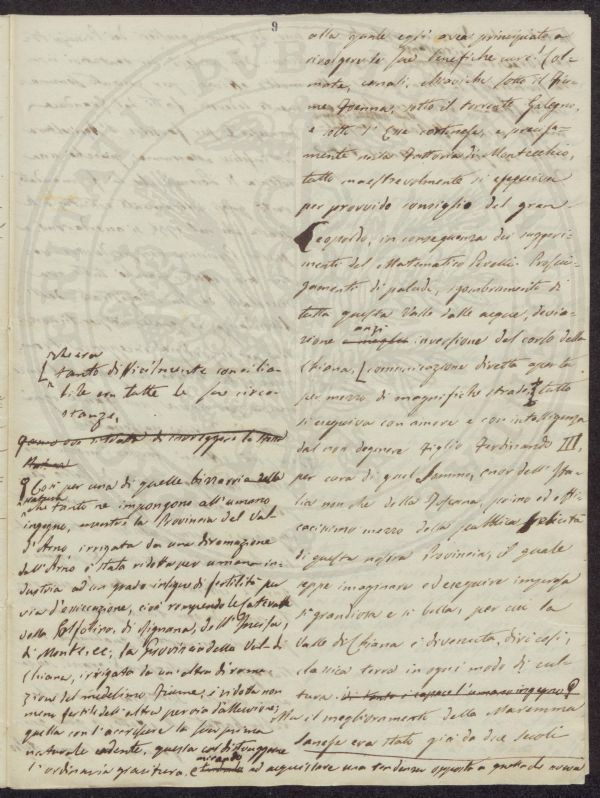 9
alla quale egli avea principiato a
rivolgere le sue benefiche cure. Col-
mate, canali, chiaviche sotto il fiu-
me Foenna, sotto il torrente Galegno,
e sotto l' Esse cortonese, e precisa-
mente nella Fattoria di Montecchio,
tutto maestrevolmente si eseguiva
per provvido consiglio del gran
Leopoldo, in conseguenza dei suggeri-
menti del Matematico Perelli. Prosciu-
gamenti di paludi, sgombramento di
tutta questa Valle dalle acque, devia-
zione o meglio anzi inversione del corso della
Chiana, comunicazione diretta aperta
per mezzo di magnifiche strade, tutto
si eseguiva con amore e con intelligenza
dal non degenere figlio Ferdinando III,
per cura di quel Sommo, onor dell' Ita-
lia non che della Toscana, primo ed effi-
cacissimo mezzo della pubblica felicità
di questa nostra Provincia, il quale
seppe imaginare ed eseguire impresa
sì grandiosa e sì bella, per cui la
Valle di Chiana è divenuta, dirò così,
classica terra in ogni modo di cul-
tura. di tanto è capace l'umano ingegno?
Ma il miglioramento della Maremma
Sanese era stato già da due secoli
ed acquistare una tendenza opposta a quella che aveva
tanto difficilmente concilia-
bile con tutte le sue circo-
stanze,
Così per una di quelle bizzarrie della
natura
che tanto ne impongono all'umano
ingegno, mentre la Provincia del Val-
d' Arno, irrigata da una diramazione
dell' Arno è stata ridotta per umana in-
dustria ad un grado insigne di fertilità per
via d'essiccazione, cioè rompendo le cateratte
della Golfolina, di Rignano, dell' Incisa,
di Monte, ec; la Provincia della Val di
Chiana, irrigata da un'altra dirama-
zione del medesimo Fiume, è ridotta non
meno fertile dell' altra per via d'alluvione;
quella con l'accrescere la sua prima
naturale cadente, questa col distruggere
l'ordinaria giacitura, e